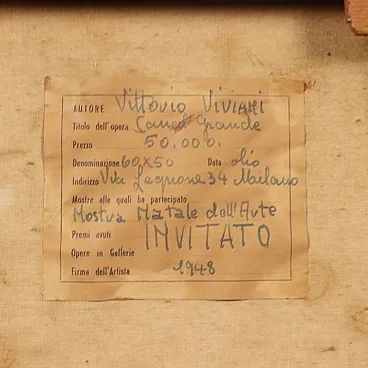 AUTORE Vittorio Viviani
Titolo dell'opera Canal Grande
Prezzo 50.000.
Denominazione 60x50 Data olio
Indirizzo Via Legnone 34 Mailano
Mostre alle quali ha partecipato
Mostra Natale dell'Arte
Premi avuti INVITATO
Opere in Gallerie
Firma dell'Artista 1948